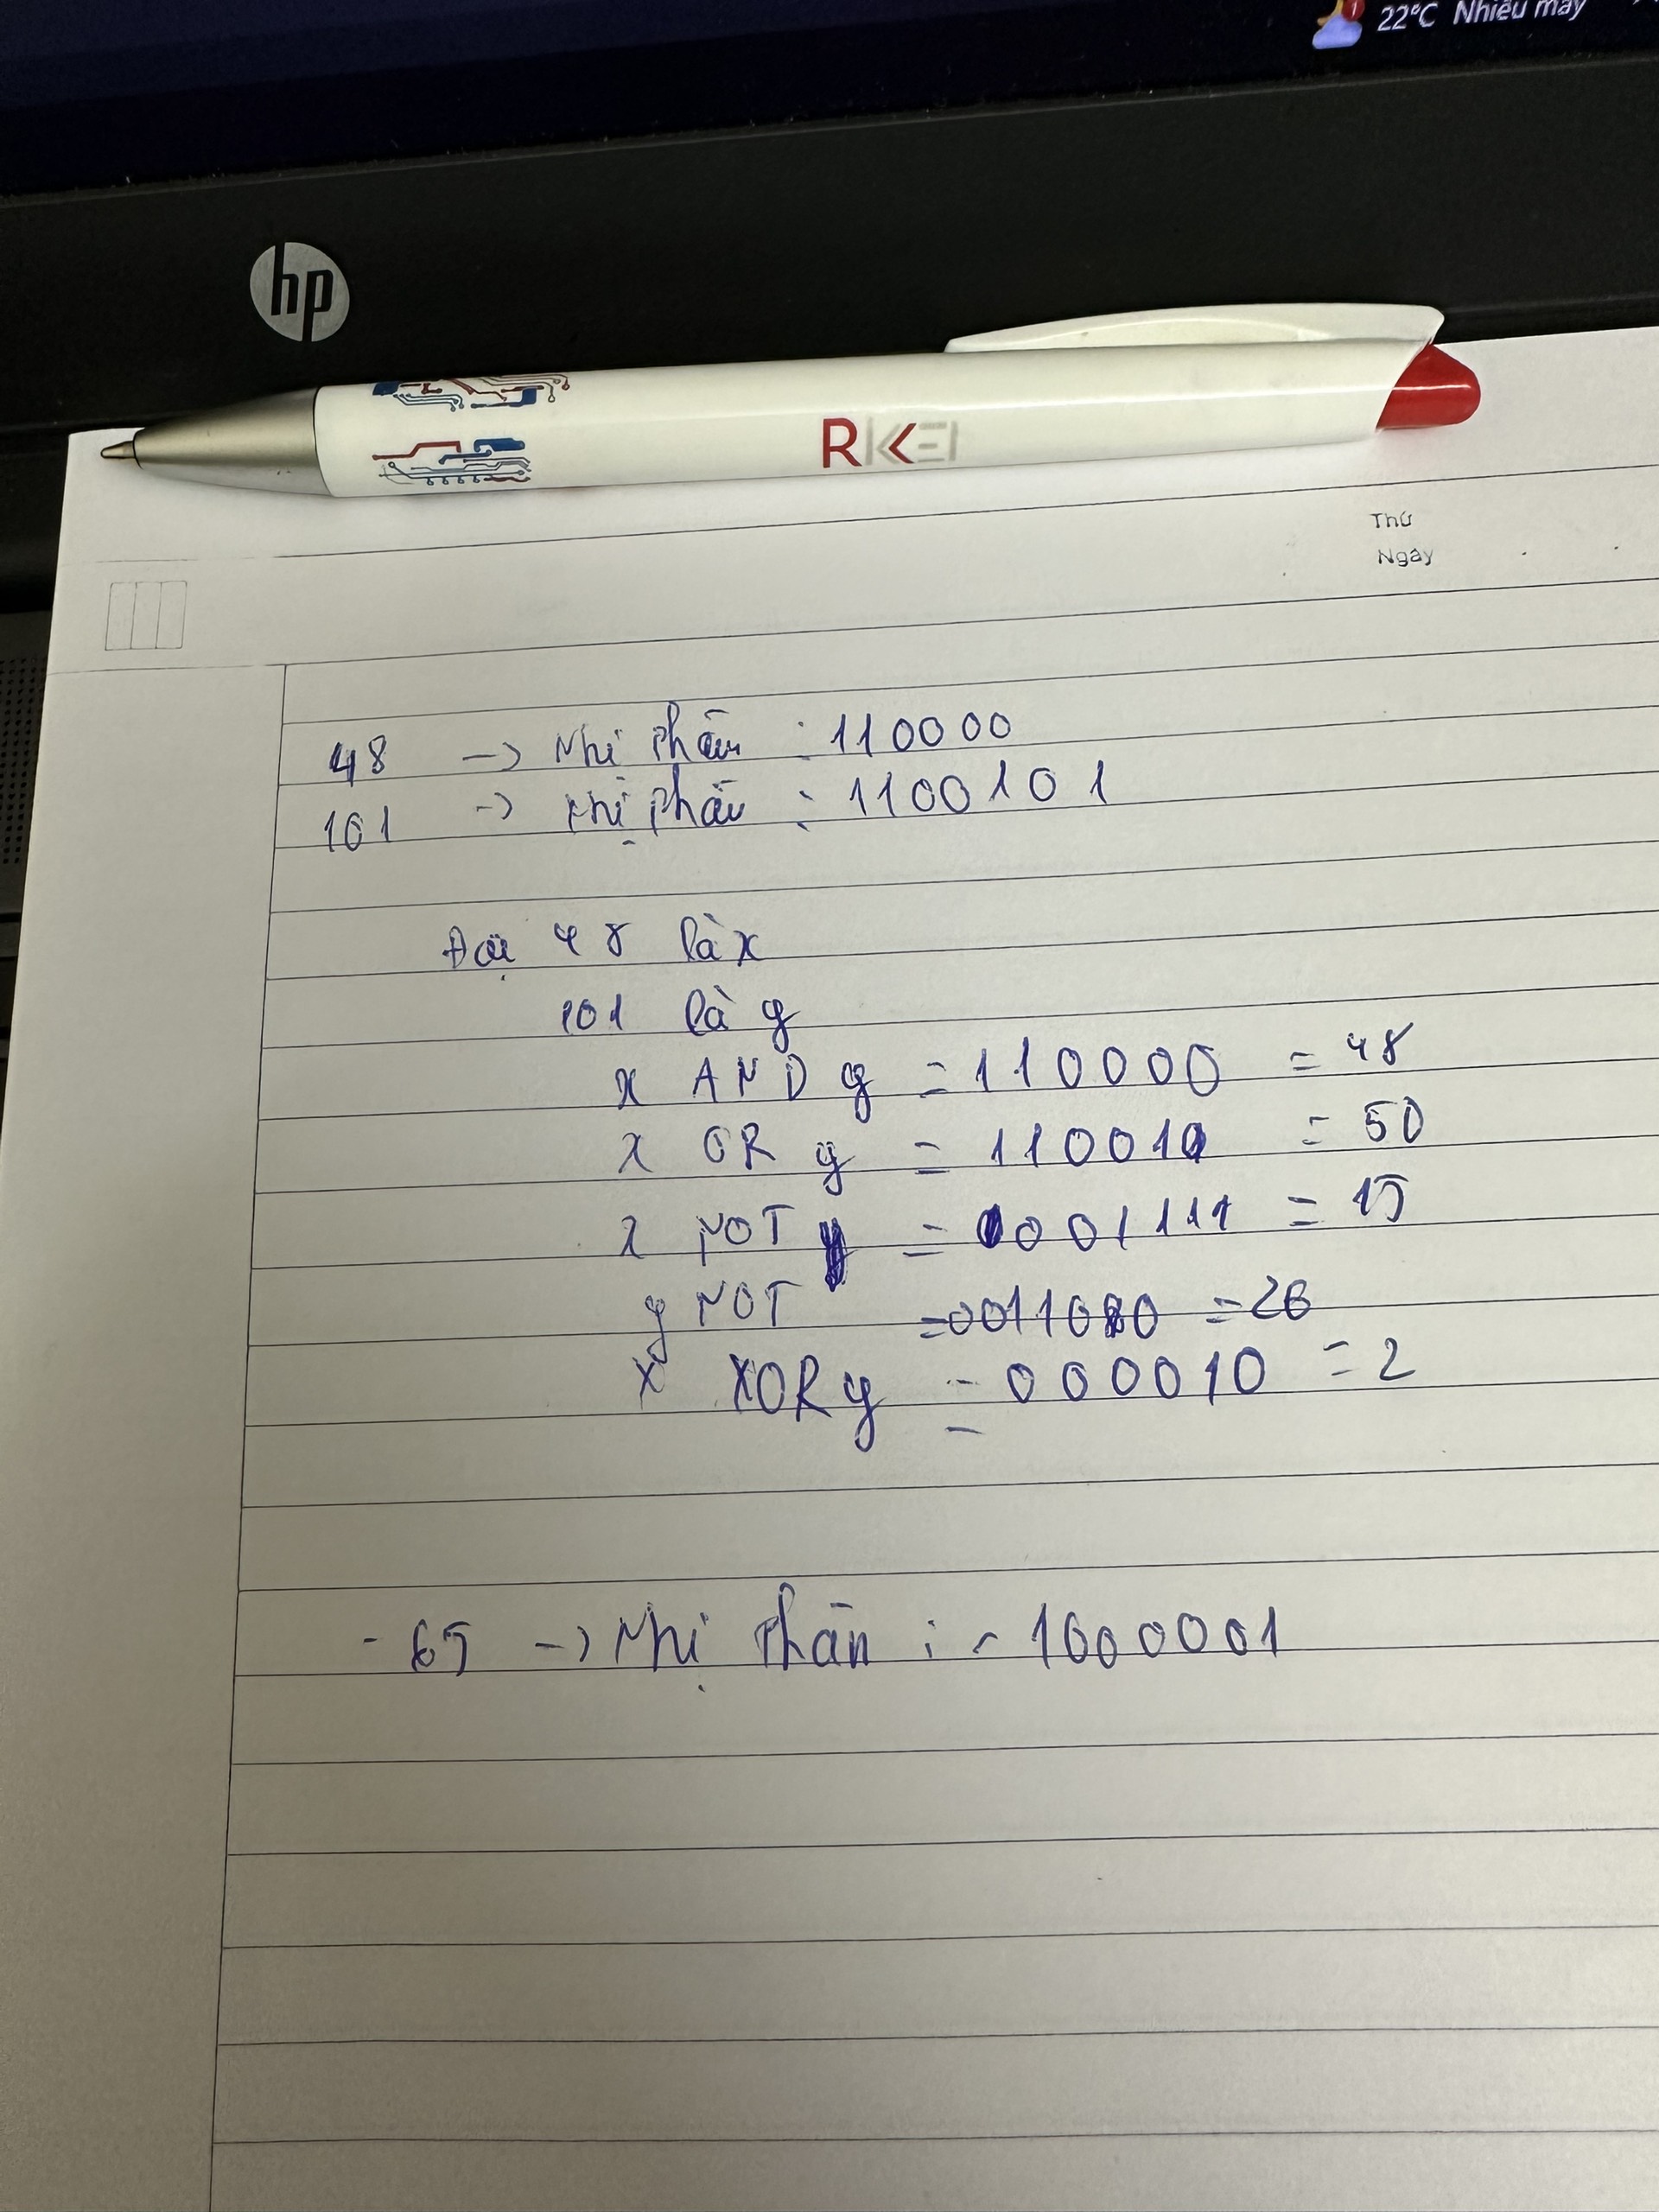 22°C Nhiều mây
hp
RKEI
Thứ
Ngày
48 -> Nhị phân : 110000
101 -> Nhị phân : 1100101
Đặt 48 là x
101 là y
x AND y = 110000 = 48
x OR y = 110010 = 50
x NOT = 0001111 = 15
y NOT = 0011010 = 26
x XOR y = 000010 = 2
- 65 -> Nhị phân : - 1000001